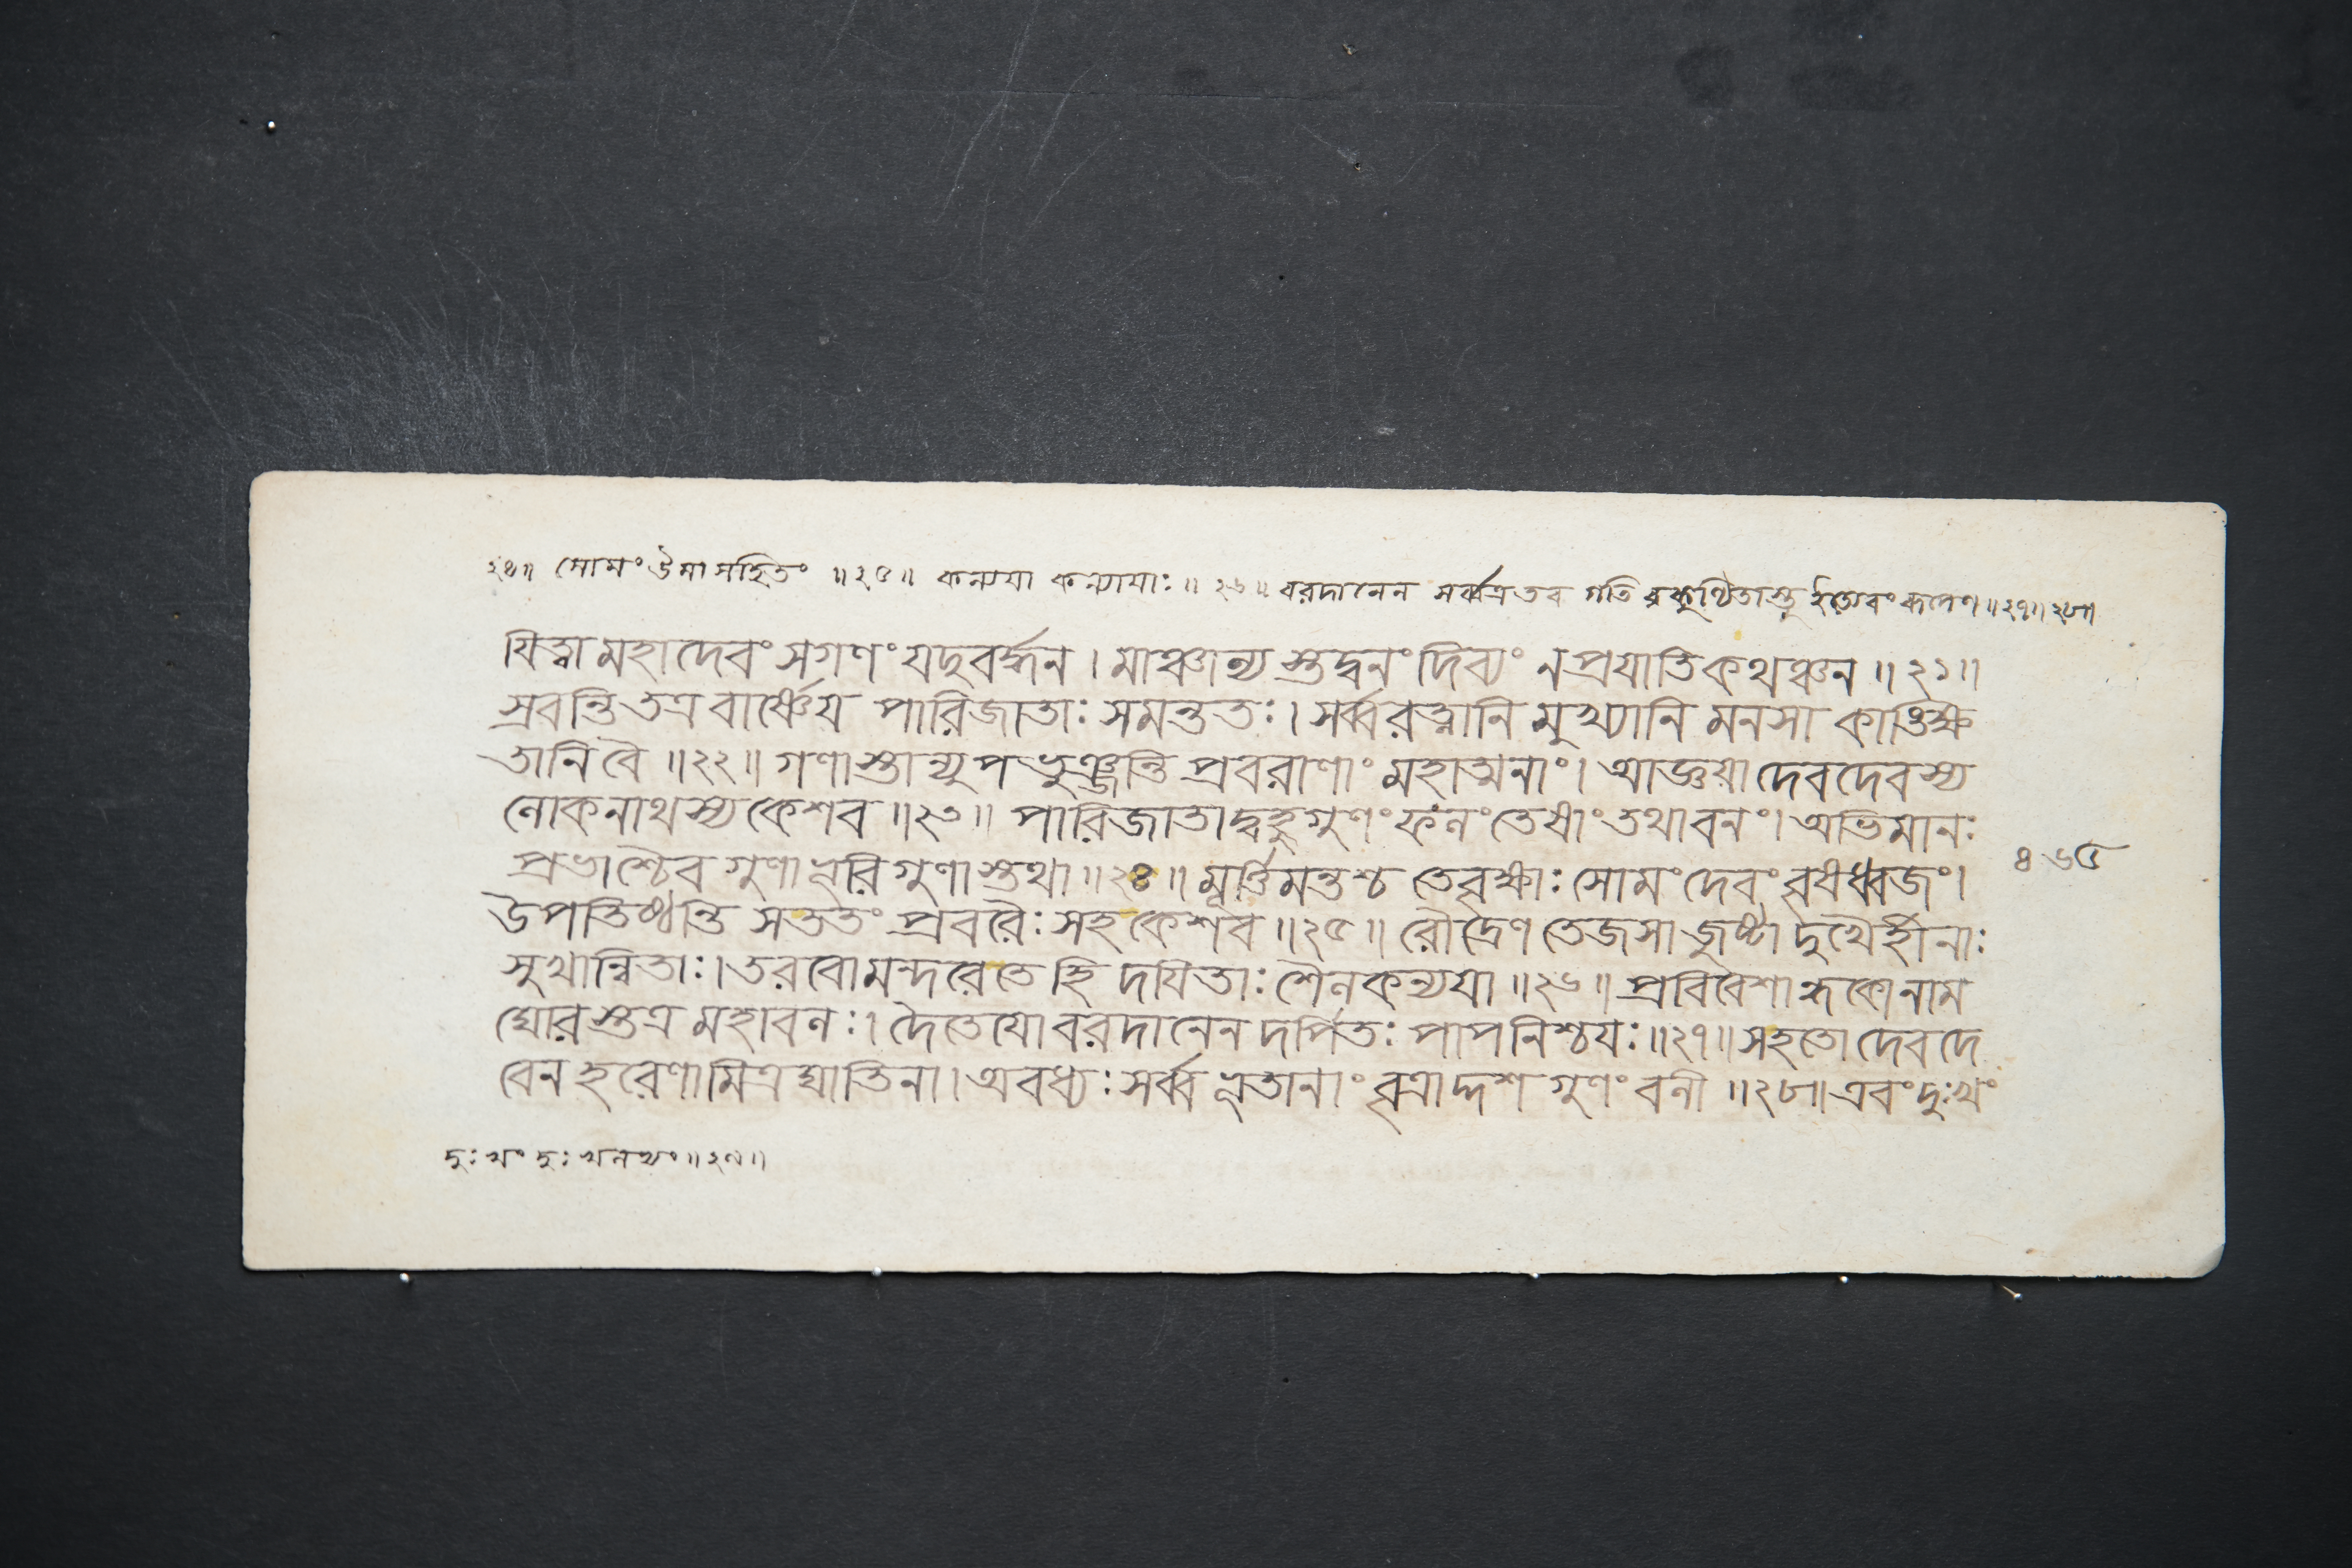 ২৪॥ সোমং উমাসহিতং ॥২৫॥ কন্যয়া কন্যায়াঃ॥ ২৬॥ বরদানেন সর্ব্বত্র তব গতি ॥২৭॥২৮॥
যিত্বা মহাদেবং সগণং যদুবর্দ্ধন । মাঞ্চান্য স্তদ্বনং দিব্যং ন প্রযাতি কথঞ্চন ॥ ২১॥
স্রবন্তি তত্র বার্ষ্ণেয় পারিজাতাঃ সমন্ততঃ । সর্ব্বরত্নানি মুখ্যানি মনসা কাঙিক্ষ
তানি বৈ ॥২২॥ গণাস্তান্যুপভুঞ্জন্তি প্রবরাণাং মহাত্মনাং । আজ্ঞয়া দেবদেবস্য
লোকনাথস্য কেশব ॥২৩॥ পারিজাতাদ্বহুগুণং ফলং তেষাং তথা বনং । অভিমান
প্রভাশ্চৈব গুণা ভূরিগুণাস্তথা ॥২৪॥ মূর্ত্তিমন্তশ্চ তে বৃক্ষাঃ সোমং দেবং বৃষধ্বজং ।
৪৬৫
উপতিষ্ঠন্তি সততং প্রবরৈঃ সহ কেশব ॥২৫॥ রৌদ্রেণ তেজসা জুষ্টা দুখৈর্হীনাঃ
সুখান্বিতাঃ । তরবো মন্দরে তে হি দয়িতাঃ শৈলকন্যয়া ॥২৬॥ প্রবিবেশান্ধকো নাম
ঘোরস্তত্র মহাবলঃ । দৈতেয়ো বরদানেন দর্পিতঃ পাপনিশ্চয়ঃ ॥২৭॥ স হতো দেবদে
বেন হরেণামিত্রঘাতিনা । অবধ্যঃ সর্ব্বভূতানাং বৃত্রাদ্দশগুণং বলী ॥২৮॥ এবং দুঃখং
দুঃখং দুঃখলভ্যং ॥২৯॥